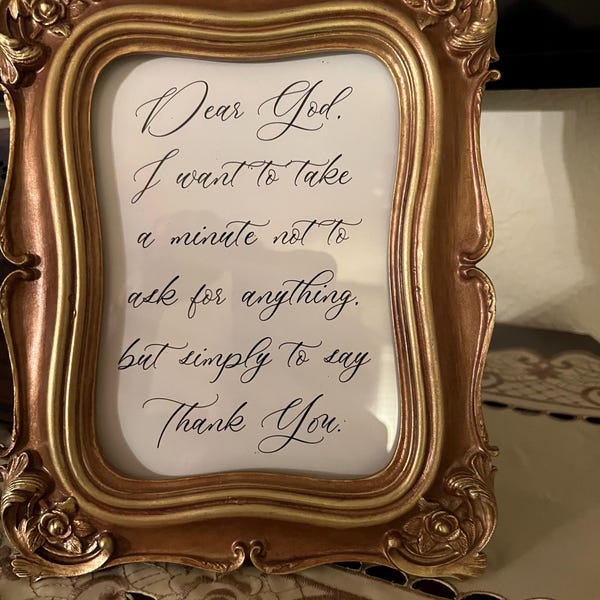 Dear God,
I want to take
a minute not to
ask for anything,
but simply to say
Thank You.